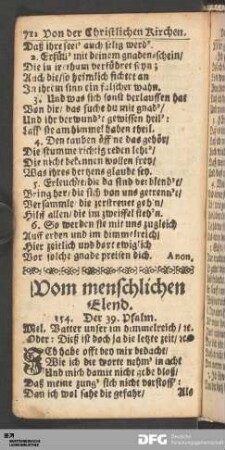 712 Von der Christlichen Kirchen.
Daß ihre seel' auch selig werd'.
2. Erfüll' mit deinem gnaden-schein/
Die in irrthum verführet seyn;
Auch die/ so heimlich sichtet an
In ihrem sinn ein falscher wahn.
3. Und was sich sonst verlauffen hat
Von dir/ das suche du mit gnad'/
Und ihr verwund't gewissen heil':
Laß' sie am himmel haben theil.
4. Den tauben öffne das gehör/
Die stumme richtig reden lehr'/
Die nicht bekennen wollen frey/
Was ihres hertzens glaube sey.
5. Erleuchte/ die da sind verblend't/
Bring her/ die sich von uns getrennt/
Versammle die zerstreuet gehn/
Hilff allen/ die im zweiffel stehn.
6. So werden sie mit uns zugleich
Auff erden und im himmelreich/
Hier zeitlich und dort ewiglich
Vor solche gnade preisen dich. Anon.
Vom menschlichen
Elend.
154. Der 39. Psalm.
Mel. Vatter unser im himmelreich/ ic.
Oder: Dieß ist doch ja die letzte zeit/ ic.
Ich habe offt bey mir bedacht/
Wie ich die worte nehm' in acht
Und mich damit nicht gebe bloß/
Daß meine zung' sich nicht verstoß':
Dan ich wol sahe die gefahr/ Als
DFG Deutsche
Forschungsgemeinschaft